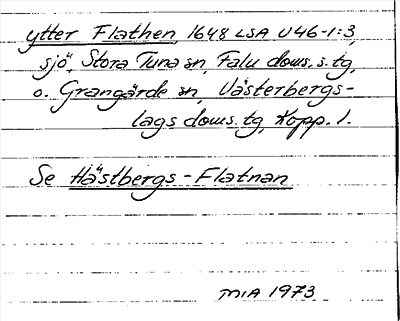 ytter Flathen, 1648 LSA U46-1:3,
sjö, Stora Tuna sn, Falu doms.s.tg,
o. Grangärde sn, Västerbergs-
lags doms.tg, Kopp. l.
Se Hästbergs-Flatnan
MIA 1973